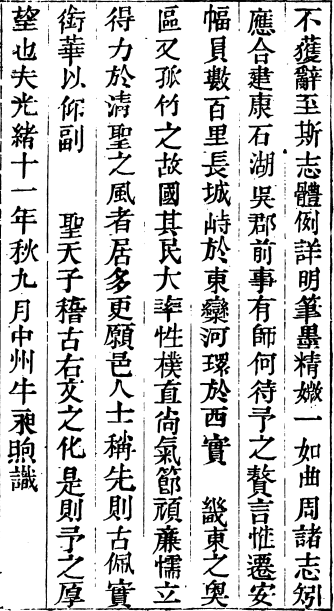 不獲辭至斯志體例詳明筆墨精嫩一如曲周諸志矧
應合建康石湖吳郡前事有師何待予之贅言惟遷安
幅員數百里長城峙於東灤河環於西實　畿東之奧
區又孤竹之故國其民大率性樸直尚氣節頑廉懦立
得力於清聖之風者居多更願邑人士稱先則古佩實
銜華以仰副　聖天子稽古右文之化是則予之厚
望也夫光緒十一年秋九月中州牛昶煦識